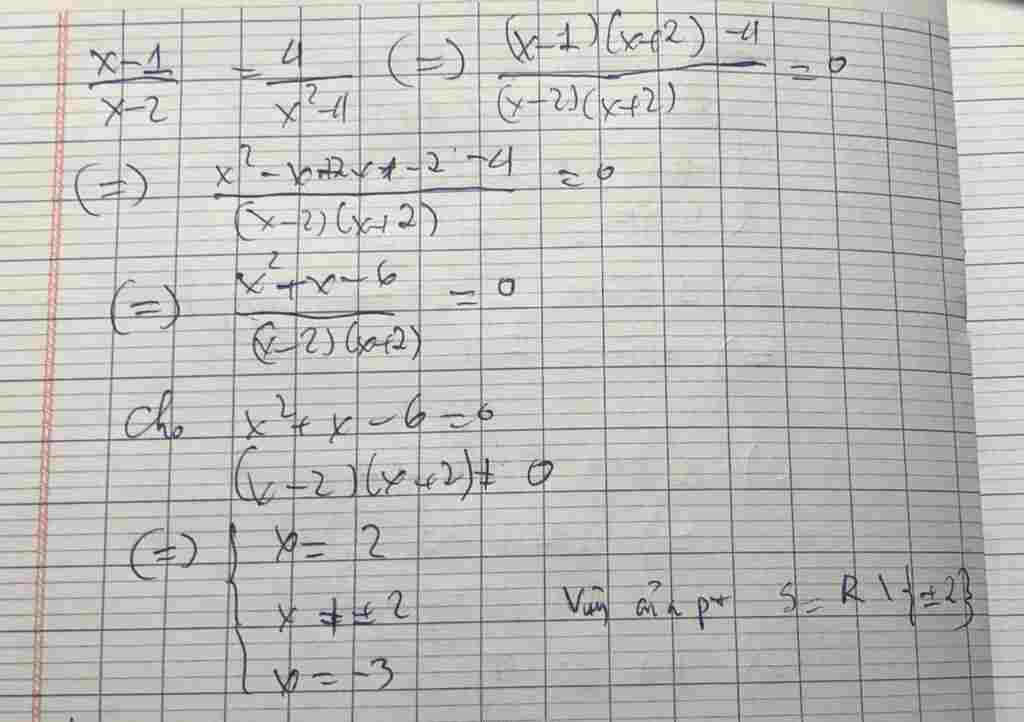 x-1/x-2 = 4/x²-4 (=) (x-1)(x+2)-4/(x-2)(x+2) = 0
(=) x²-x+2x-2-4/(x-2)(x+2) = 0
(=) x²+x-6/(x-2)(x+2) = 0
Cho x²+x-6=0
(x-2)(x+2)≠0
(=) { x = 2
x ≠ ±2 Vậy pt S = R \ {±2}
x = -3